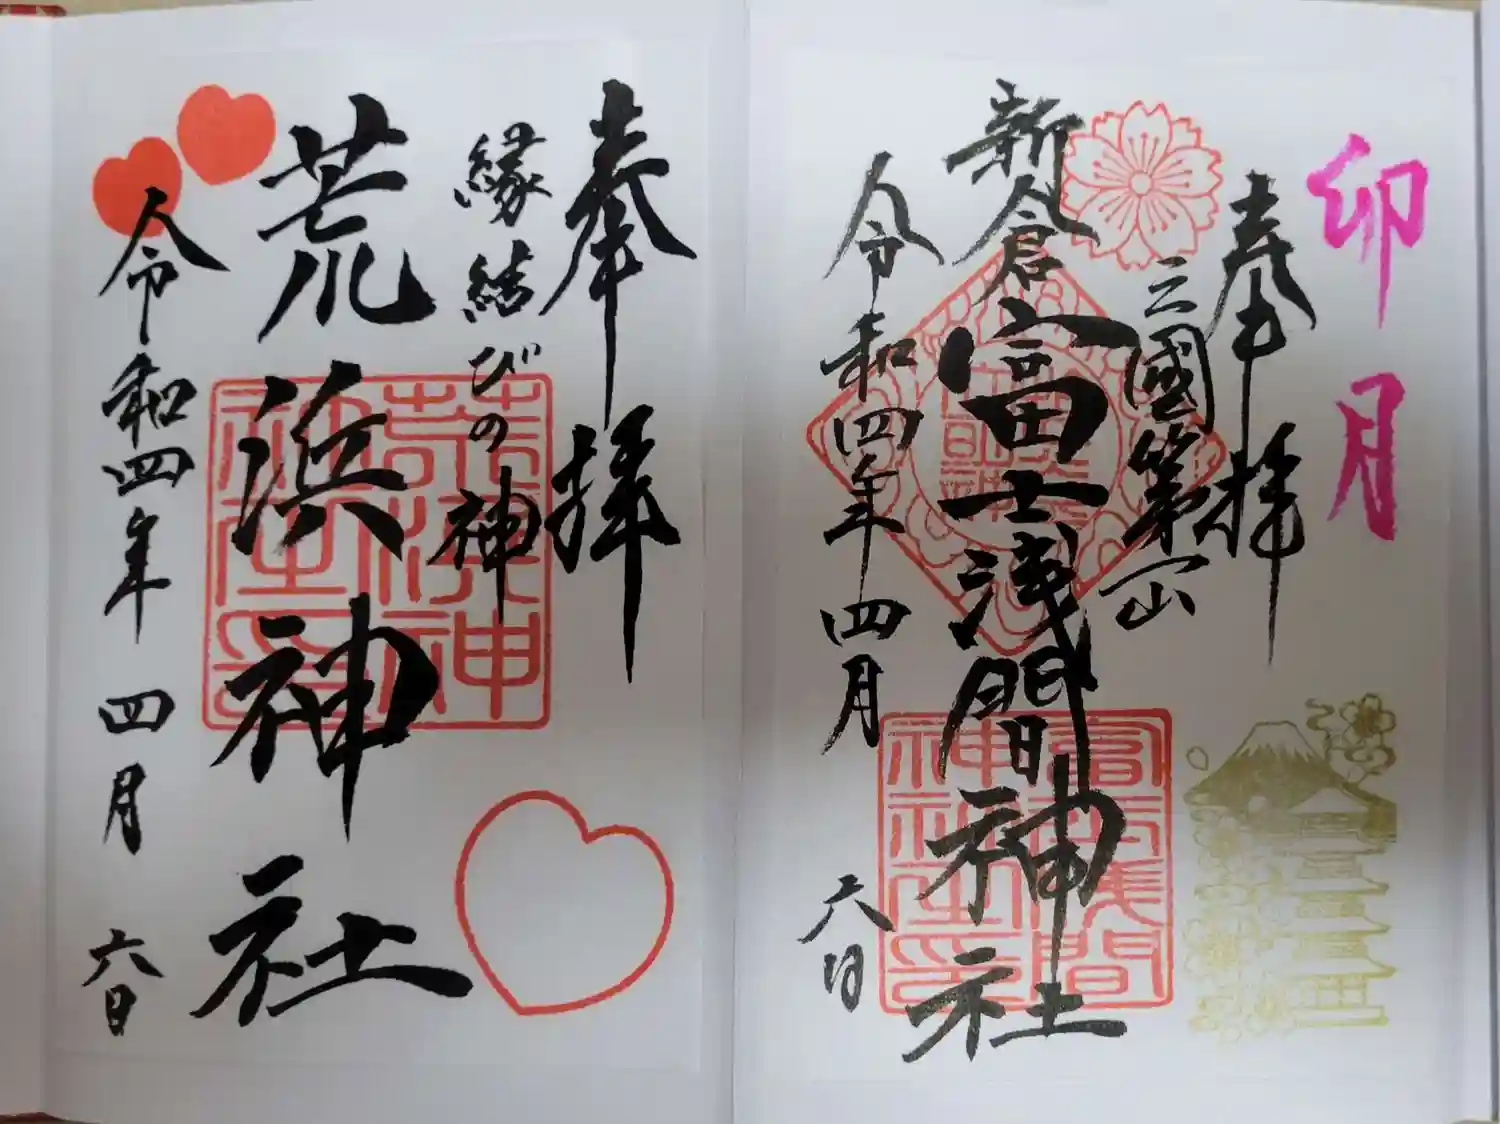 卯月
奉拝
三國第一山
新倉富士浅間神社
令和四年四月六日
富士浅間
神社之印
奉拝
縁結びの神
荒浜神社
令和四年四月六日